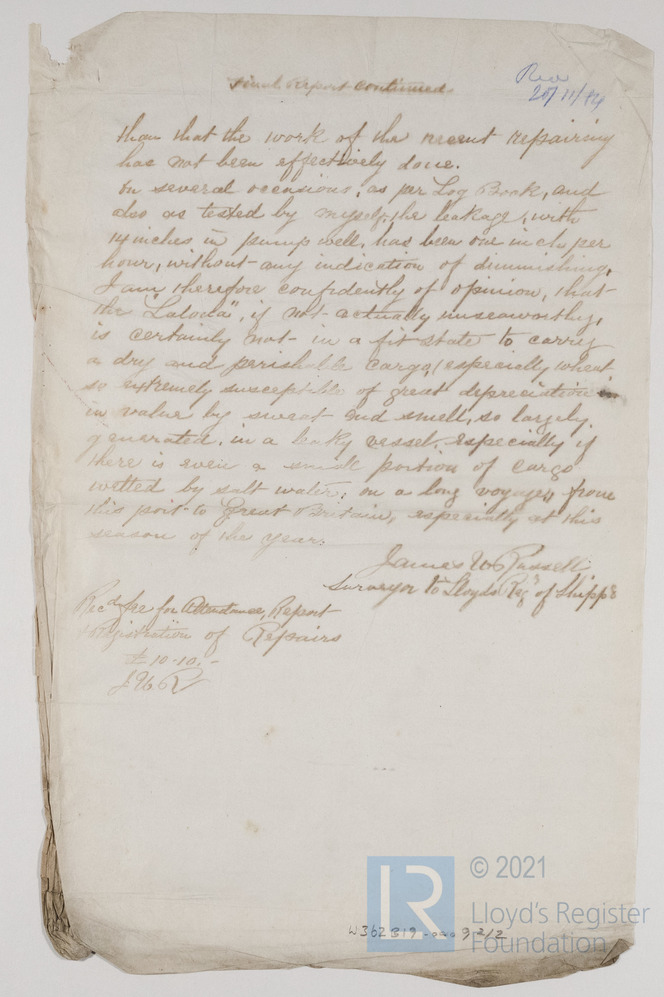 Final Report continued.
Rec
20/11/74
than that the work of the recent repairing
has not been effectively done.
On several occasions, as per Log Book, and
also as tested by myself, the leakage, with
14 inches in pump well, has been one inch per
hour, without any indication of diminishing,
I am therefore confidently of opinion, that
the "Laloda", if not actually unseaworthy,
is certainly not in a fit state to carry
a dry and perishable cargo, especially wheat
so extremely susceptible of great depreciation
in value by sweat and smell, so largely
generated, in a leaky vessel, especially if
there is even a small portion of cargo
wetted by salt water, on a long voyage, from
this port to Great Britain, especially at this
season of the year.
James W Russell
Surveyor to Lloyds Reg^r of Shipp^g
Rec^d fee for Attendance, Report
& Registration of Repairs
£10-10.-
J W R
W362319-0203 2/2
LR
© 2021
Lloyd's Register
Foundation